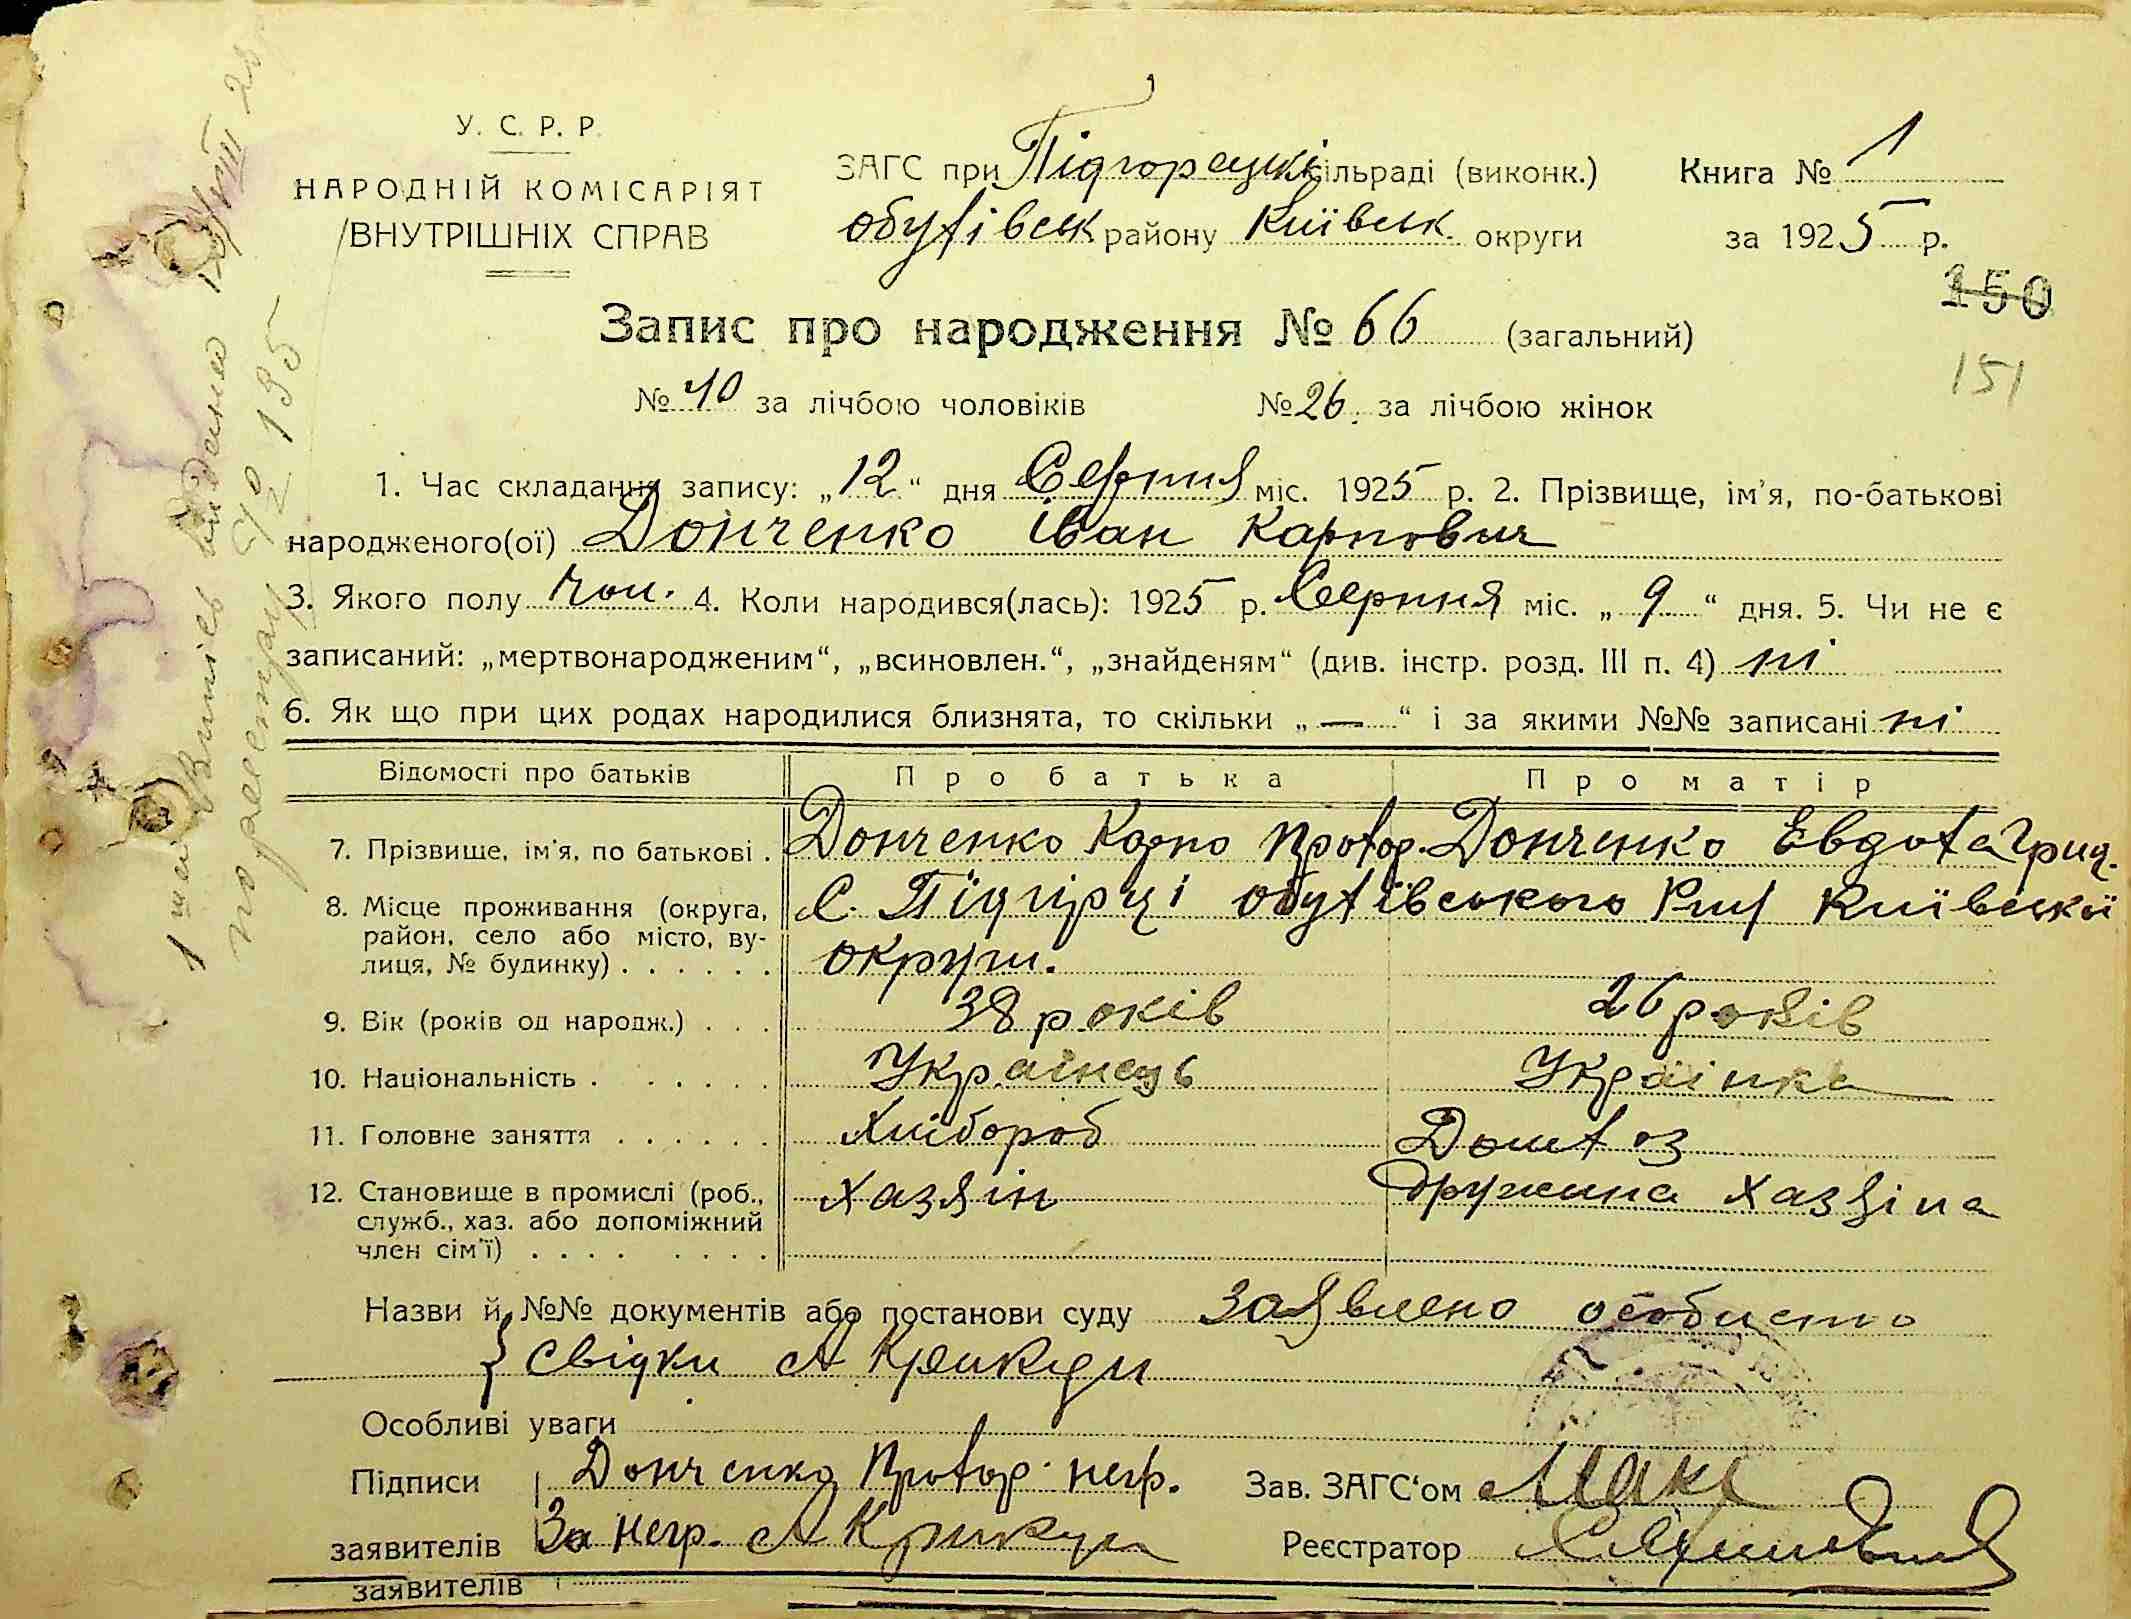 У. С. Р. Р.
НАРОДНІЙ КОМІСАРІЯТ
ВНУТРІШНІХ СПРАВ
ЗАГС при Підгорецкі сільраді (виконк.)
обухівськ району Київськ. округи
Книга № 1
за 1925 р.
150
151
Запис про народження № 66 (загальний)
№ 40 за лічбою чоловіків № 26. за лічбою жінок
1. Час складання запису: „12“ дня Серпня міс. 1925 р. 2. Прізвище, ім'я, по-батькові
народженого(ої) Донченко Іван Карпович
3. Якого полу чол. 4. Коли народився(лась): 1925 р. Серпня міс. „9“ дня. 5. Чи не є
записаний: „мертвонародженим“, „всиновлен.“, „знайденям“ (див. інстр. розд. III п. 4) ні
6. Як що при цих родах народилися близнята, то скільки „—“ і за якими №№ записані ні
Відомості про батьків Про батька Про матір
7. Прізвище, ім'я, по батькові. Донченко Карпо Прохор. Донченко Евдоха Гриц.
8. Місце проживання (округа, район, село або місто, вулиця, № будинку) С. Підгірці обухівського Київської
округи.
9. Вік (років од народж.) 38 років 26 років
10. Національність Українець Українка
11. Головне заняття Хлібороб
12. Становище в промислі (роб., служб., хаз. або допоміжний член сім'ї) Хазяїн дружина хазяїна
Назви й №№ документів або постанови суду заявлено особисто
свідки А Крикун
Особливі уваги
Підписи Донченко Прохор. негр. Зав. ЗАГС'ом
заявителів За негр. А Крикун Реєстратор
заявителів
Витісь видана
по реєстру № 135